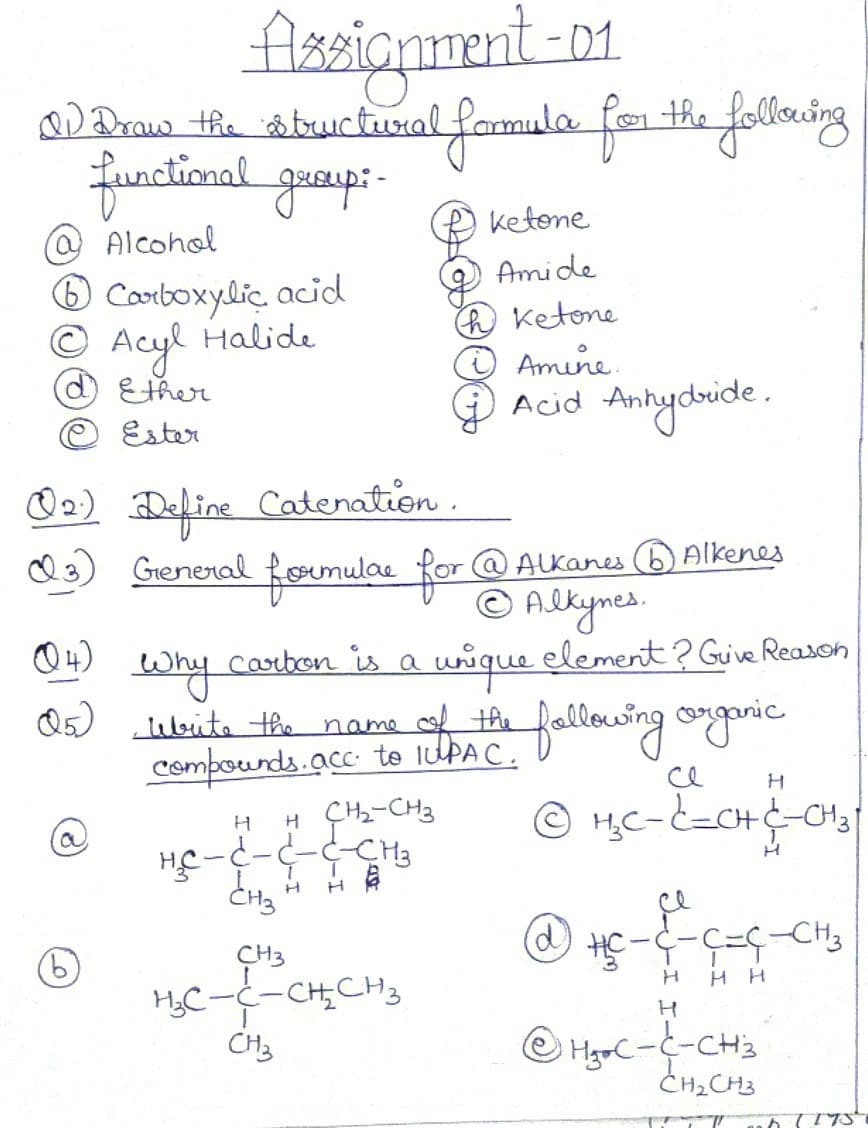 Assignment-01
Q1) Draw the structural formula for the following
functional group:-
(a) Alcohol
(b) Carboxylic acid
(c) Acyl Halide
(d) Ether
(e) Ester
(f) Ketone
(g) Amide
(h) Ketone
(i) Amine.
(j) Acid Anhydride.
Q2.) Define Catenation.
Q3) General formulae for (a) Alkanes (b) Alkenes
(c) Alkynes.
Q4) Why carbon is a unique element? Give Reason
Q5) Write the name of the following organic
compounds. acc. to IUPAC.
(a)
H H CH₂-CH₃
H₃C-C-C-C-CH₃
CH₃ H H
(b)
CH₃
H₃C-C-CH₂CH₃
CH₃
(c)
Cl H
H₃C-C=CH C-CH₃
H
(d)
Cl
H₃C-C-C=C-CH₃
H H H
(e)
H
H₃C-C-CH₃
CH₂CH₃